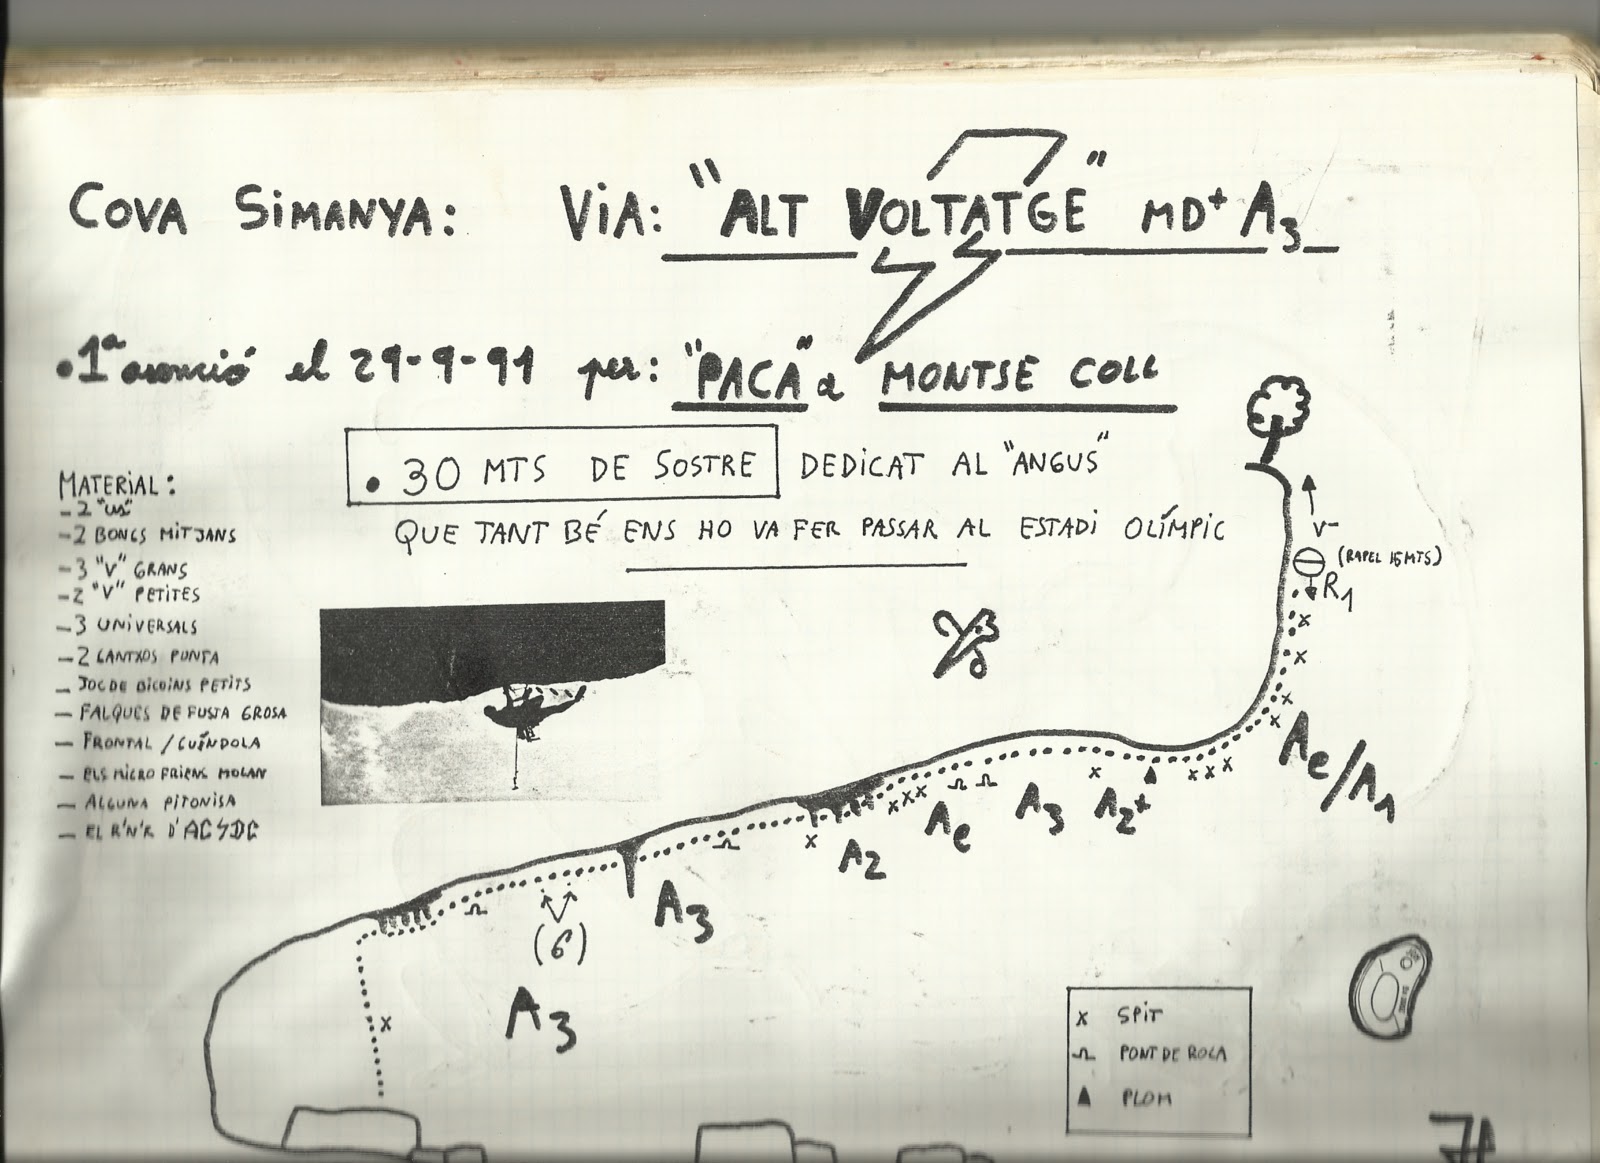 COVA SIMANYA: VIA: "ALT VOLTATGE" MD+ A3
• 1ª ascenció el 29-9-91 per: "PACA" & MONTSE COLL
• 30 MTS DE SOSTRE DEDICAT AL "ANGUS"
QUE TANT BÉ ENS HO VA FER PASSAR AL ESTADI OLÍMPIC
MATERIAL:
- 2 "us"
- 2 BONGS MITJANS
- 3 "V" GRANS
- 2 "V" PETITES
- 3 UNIVERSALS
- 2 GANTXOS PUNTA
- JOC DE BICOINS PETITS
- FALQUES DE FUSTA GROSA
- FRONTAL / GUÍNDOLA
- ELS MICRO FRIENS MOLAN
- ALGUNA PITONISA
- EL R'N'R D'AC⚡DC
V-
(RAPEL 15 MTS)
R1
Ae/A1
A2+
A3
Ae
A2
A3
(6)
A3
x SPIT
PONT DE ROCA
▲ PLOM